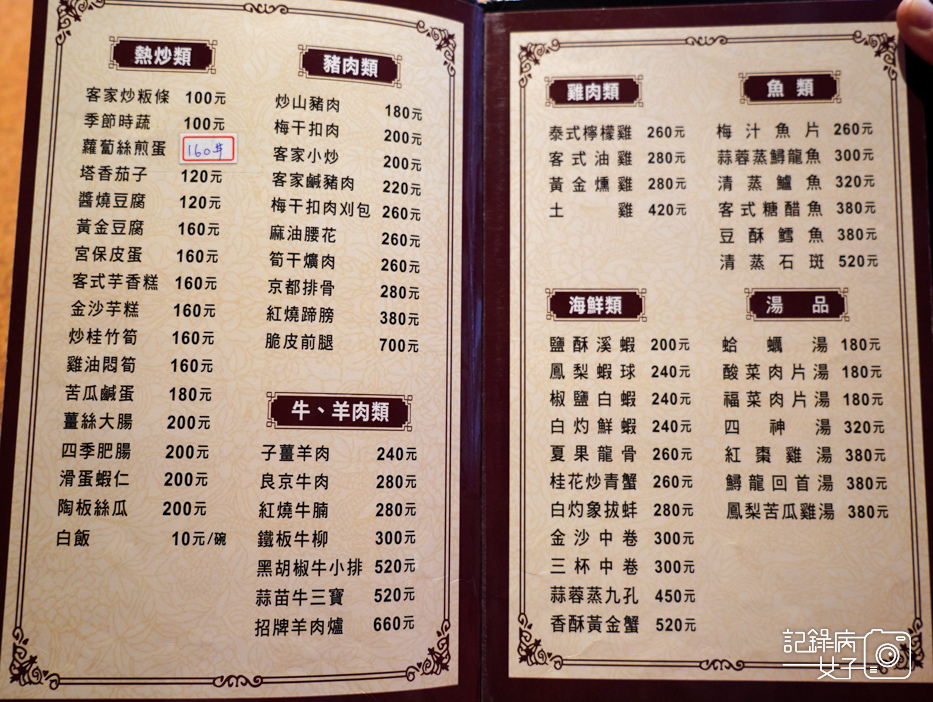 熱炒類
客家炒粄條 100元
季節時蔬 100元
蘿蔔絲煎蛋 160元
塔香茄子 120元
醬燒豆腐 120元
黃金豆腐 160元
宮保皮蛋 160元
客式芋香糕 160元
金沙芋糕 160元
炒桂竹筍 160元
雞油悶筍 160元
苦瓜鹹蛋 180元
薑絲大腸 200元
四季肥腸 200元
滑蛋蝦仁 200元
陶板絲瓜 200元
白飯 10元/碗
豬肉類
炒山豬肉 180元
梅干扣肉 200元
客家小炒 200元
客家鹹豬肉 220元
梅干扣肉刈包 260元
麻油腰花 260元
筍干爌肉 260元
京都排骨 280元
紅燒蹄膀 380元
脆皮前腿 700元
牛、羊肉類
子薑羊肉 240元
良京牛肉 280元
紅燒牛腩 280元
鐵板牛柳 300元
黑胡椒牛小排 520元
蒜苗牛三寶 520元
招牌羊肉爐 660元
雞肉類
泰式檸檬雞 260元
客式油雞 280元
黃金燻雞 280元
土雞 420元
魚類
梅汁魚片 260元
蒜蓉蒸鱘龍魚 300元
清蒸鱸魚 320元
客式糖醋魚 380元
豆酥鱈魚 380元
清蒸石斑 520元
海鮮類
鹽酥溪蝦 200元
鳳梨蝦球 240元
椒鹽白蝦 240元
白灼鮮蝦 240元
夏果龍骨 260元
桂花炒青蟹 260元
白灼象拔蚌 280元
金沙中卷 300元
三杯中卷 300元
蒜蓉蒸九孔 450元
香酥黃金蟹 520元
湯品
蛤蠣湯 180元
酸菜肉片湯 180元
福菜肉片湯 180元
四神湯 320元
紅棗雞湯 380元
鱘龍回首湯 380元
鳳梨苦瓜雞湯 380元
記錄病
女子